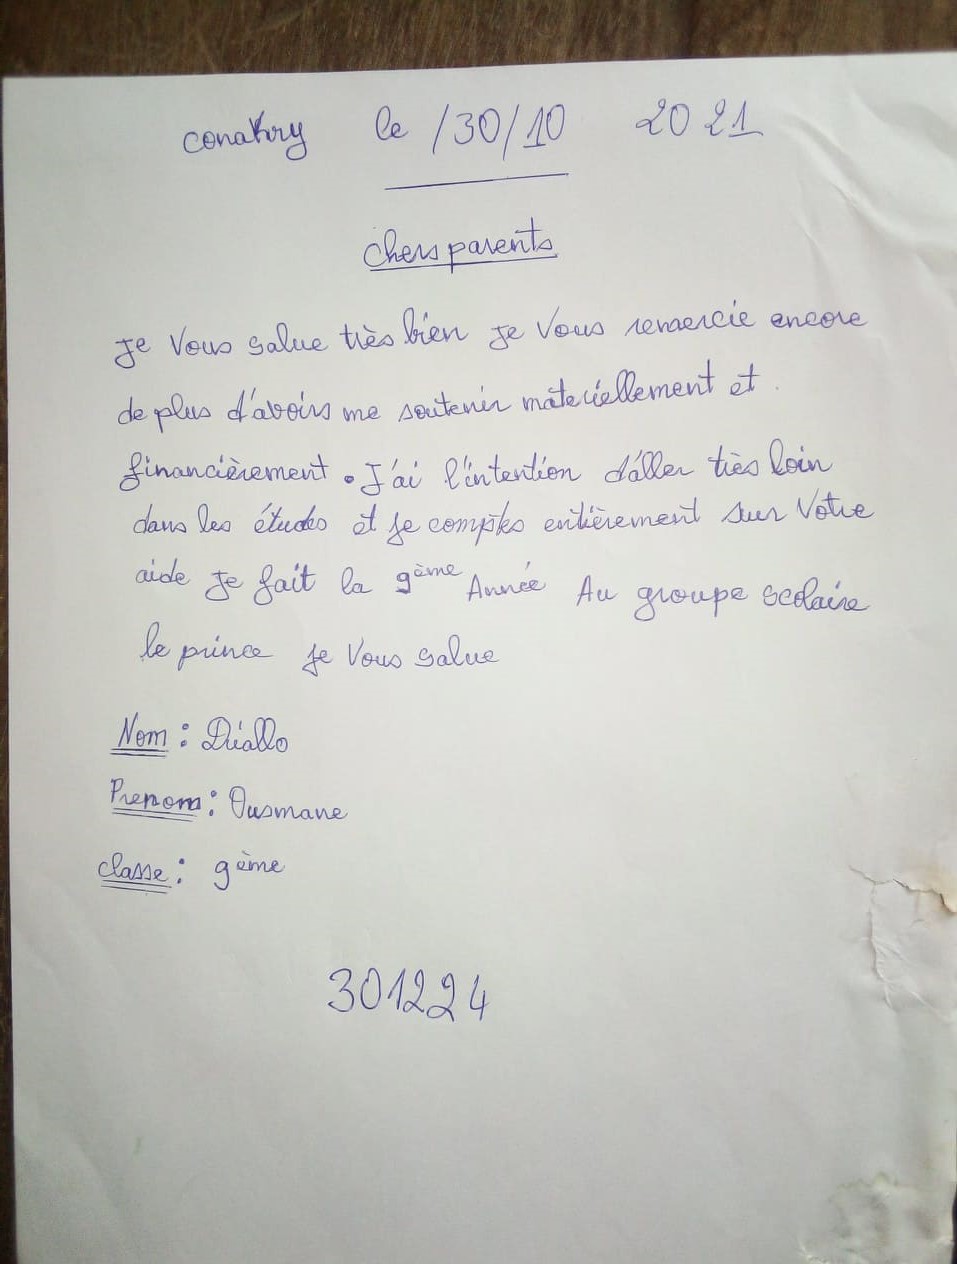 conakry le /30/10 2021
chers parents
Je Vous salue très bien je Vous remercie encore
de plus d'avoirs me soutenir matériellement et
financièrement. J'ai l'intention d'aller très loin
dans les études et je comptes entièrement sur Votre
aide Je fait la 9ème Année Au groupe scolaire
le prince je Vous salue
Nom : Diallo
Prenom : Ousmane
classe : 9ème
301224